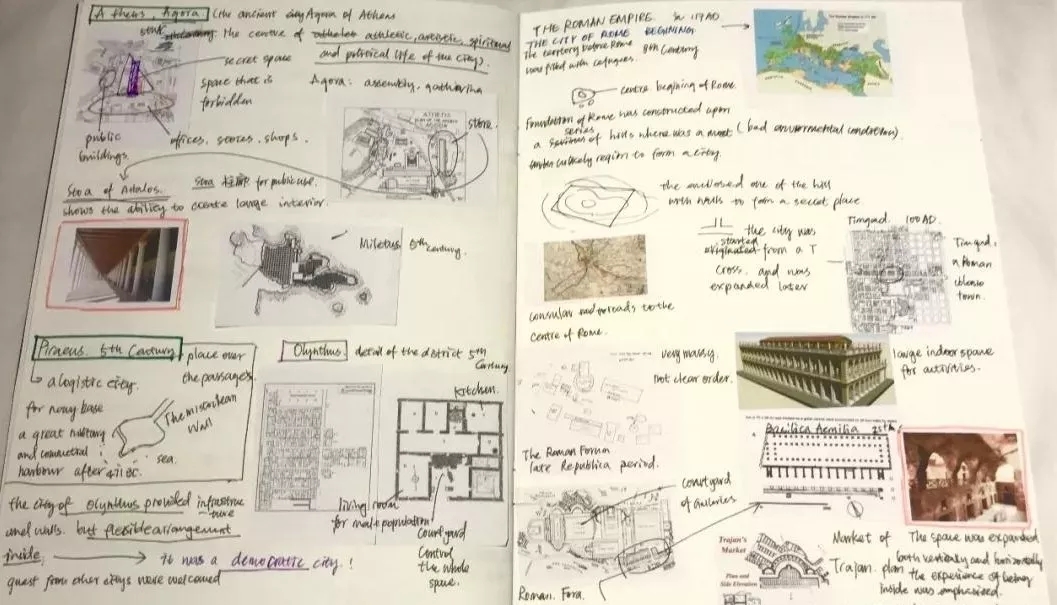 Athens, Agora (the ancient city Agora of Athens
the centre of athletic, artistic, spiritual
and political life of the city).
secret space
space that is
forbidden
Agora: assembly, gathering
public
buildings.
offices, stores, shops.
store
ATHENS
Stoa of Attalos.
Stoa 柱廊 for public use.
shows the ability to create large interior.
Miletus 5th
century.
Piraeus. 5th Century
place over
the passages.
a logistic city.
for navy base
a great military
and commercial
harbour after 471 BC.
wall
sea.
Olynthus. detail of the district 5th
Century
kitchen.
living room
for male population!
Courtyard
Control
the whole
space.
the city of Olynthus provided infrastruc
-ture
and walls. but flexible arrangement
inside,
it was a democratic city!
guest from other citys were welcomed
THE ROMAN EMPIRE. in 117 AD
THE CITY OF ROME BEGINING:
The territory before Rome 8th Century
was filled with refugees.
centre begining of Rome.
Foundation of Rome was constructed upon
series
a of hills where was a most (bad environmental condition).
unlikely region to form a city.
the enclosed one of the hill
with walls to form a secret place
the city was
started
from a T
cross. and was
expanded later
Timgad. 100AD.
Timgad:
a Roman
town.
consular roads to the
centre of Rome.
very massy.
not clear order.
large indoor space
for activities.
The Roman Forum
late Republica period.
Basilica Aemilia
courtyard
of Galleries
Roman. Fora.
Trajan's
Market
Plan and
Side Elevation
Market of
Trajan. plan
The space was expanded
both vertically and horizontally
the experience of being
inside was emphasized.